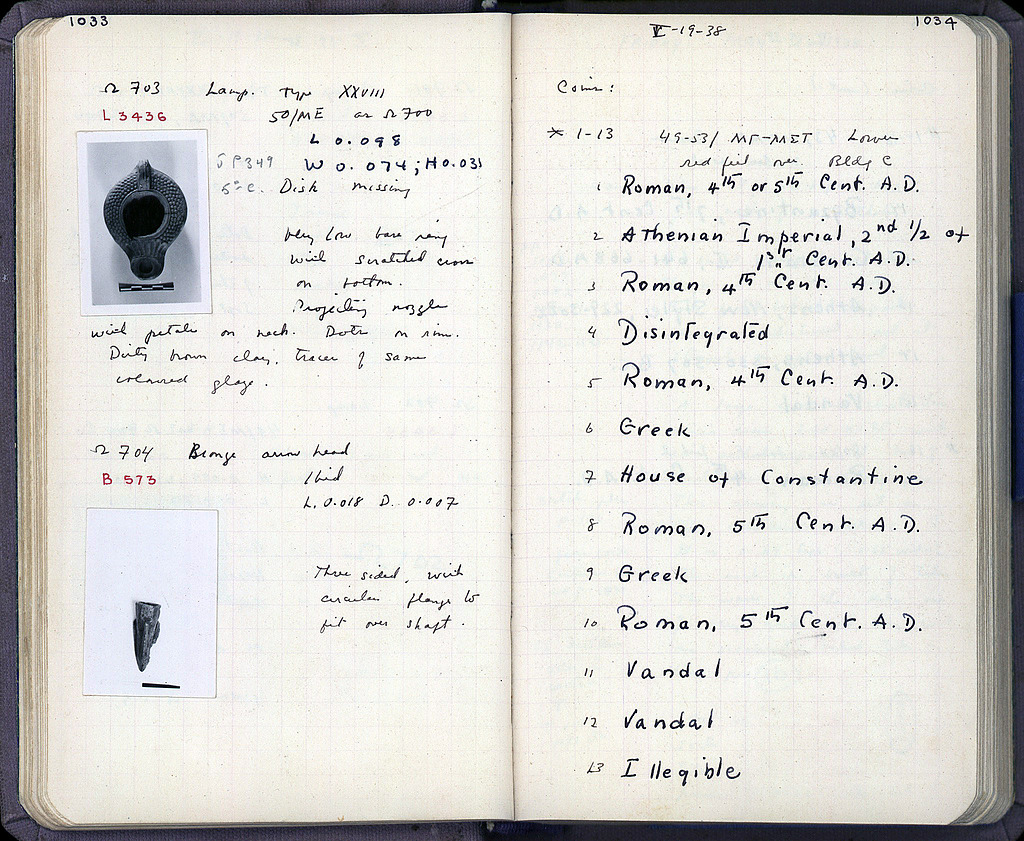 1033
Ω 703 Lamp. Type XXVIII
L 3436
50/ME as Ω 700
L 0.098
JP349 W 0.074; H 0.031
5th C. Disk missing
Very low base ring
with scratched cross
on bottom.
Projecting nozzle
with petals on neck. Dots on rim.
Dirty brown clay, traces of same
coloured glaze.
Ω 704 Bronze arrow head
B 573
Ibid
L. 0.018 D. 0.007
Three sided, with
circular flange to
fit over shaft.
1034
V-19-38
Coins:
1-13 49-53/ ΜΓ-ΜΣΤ Lower
red fill over Bldg C
1 Roman, 4th or 5th Cent. A.D.
2 Athenian Imperial, 2nd 1/2 of
1st Cent. A.D.
3 Roman, 4th Cent. A.D.
4 Disintegrated
5 Roman, 4th Cent. A.D.
6 Greek
7 House of Constantine
8 Roman, 5th Cent. A.D.
9 Greek
10 Roman, 5th Cent. A.D.
11 Vandal
12 Vandal
13 Illegible